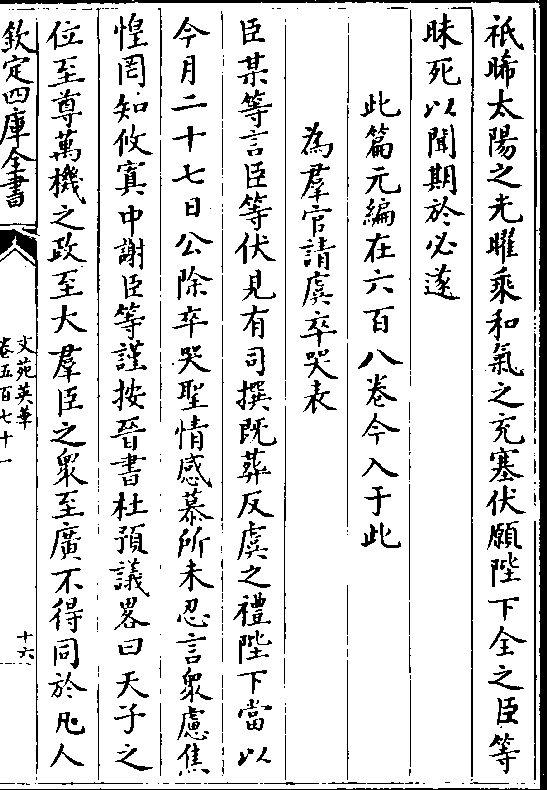 祇睎太陽之光曜乘和氣之充塞伏願陛下全之臣等
昧死以聞期於必遂
此篇元編在六百八卷今入于此
為羣官請虞卒哭表
臣某等言臣等伏見有司撰既葬反虞之禮陛下當以
今月二十七日公除卒哭聖情感慕所未忍言衆慮焦
惶罔知攸寘中謝臣等謹按晉書杜預議畧曰天子之
位至尊萬機之政至大羣臣之衆至廣不得同於凡人
欽定四庫全書
文苑英華
卷五百七十一
十六